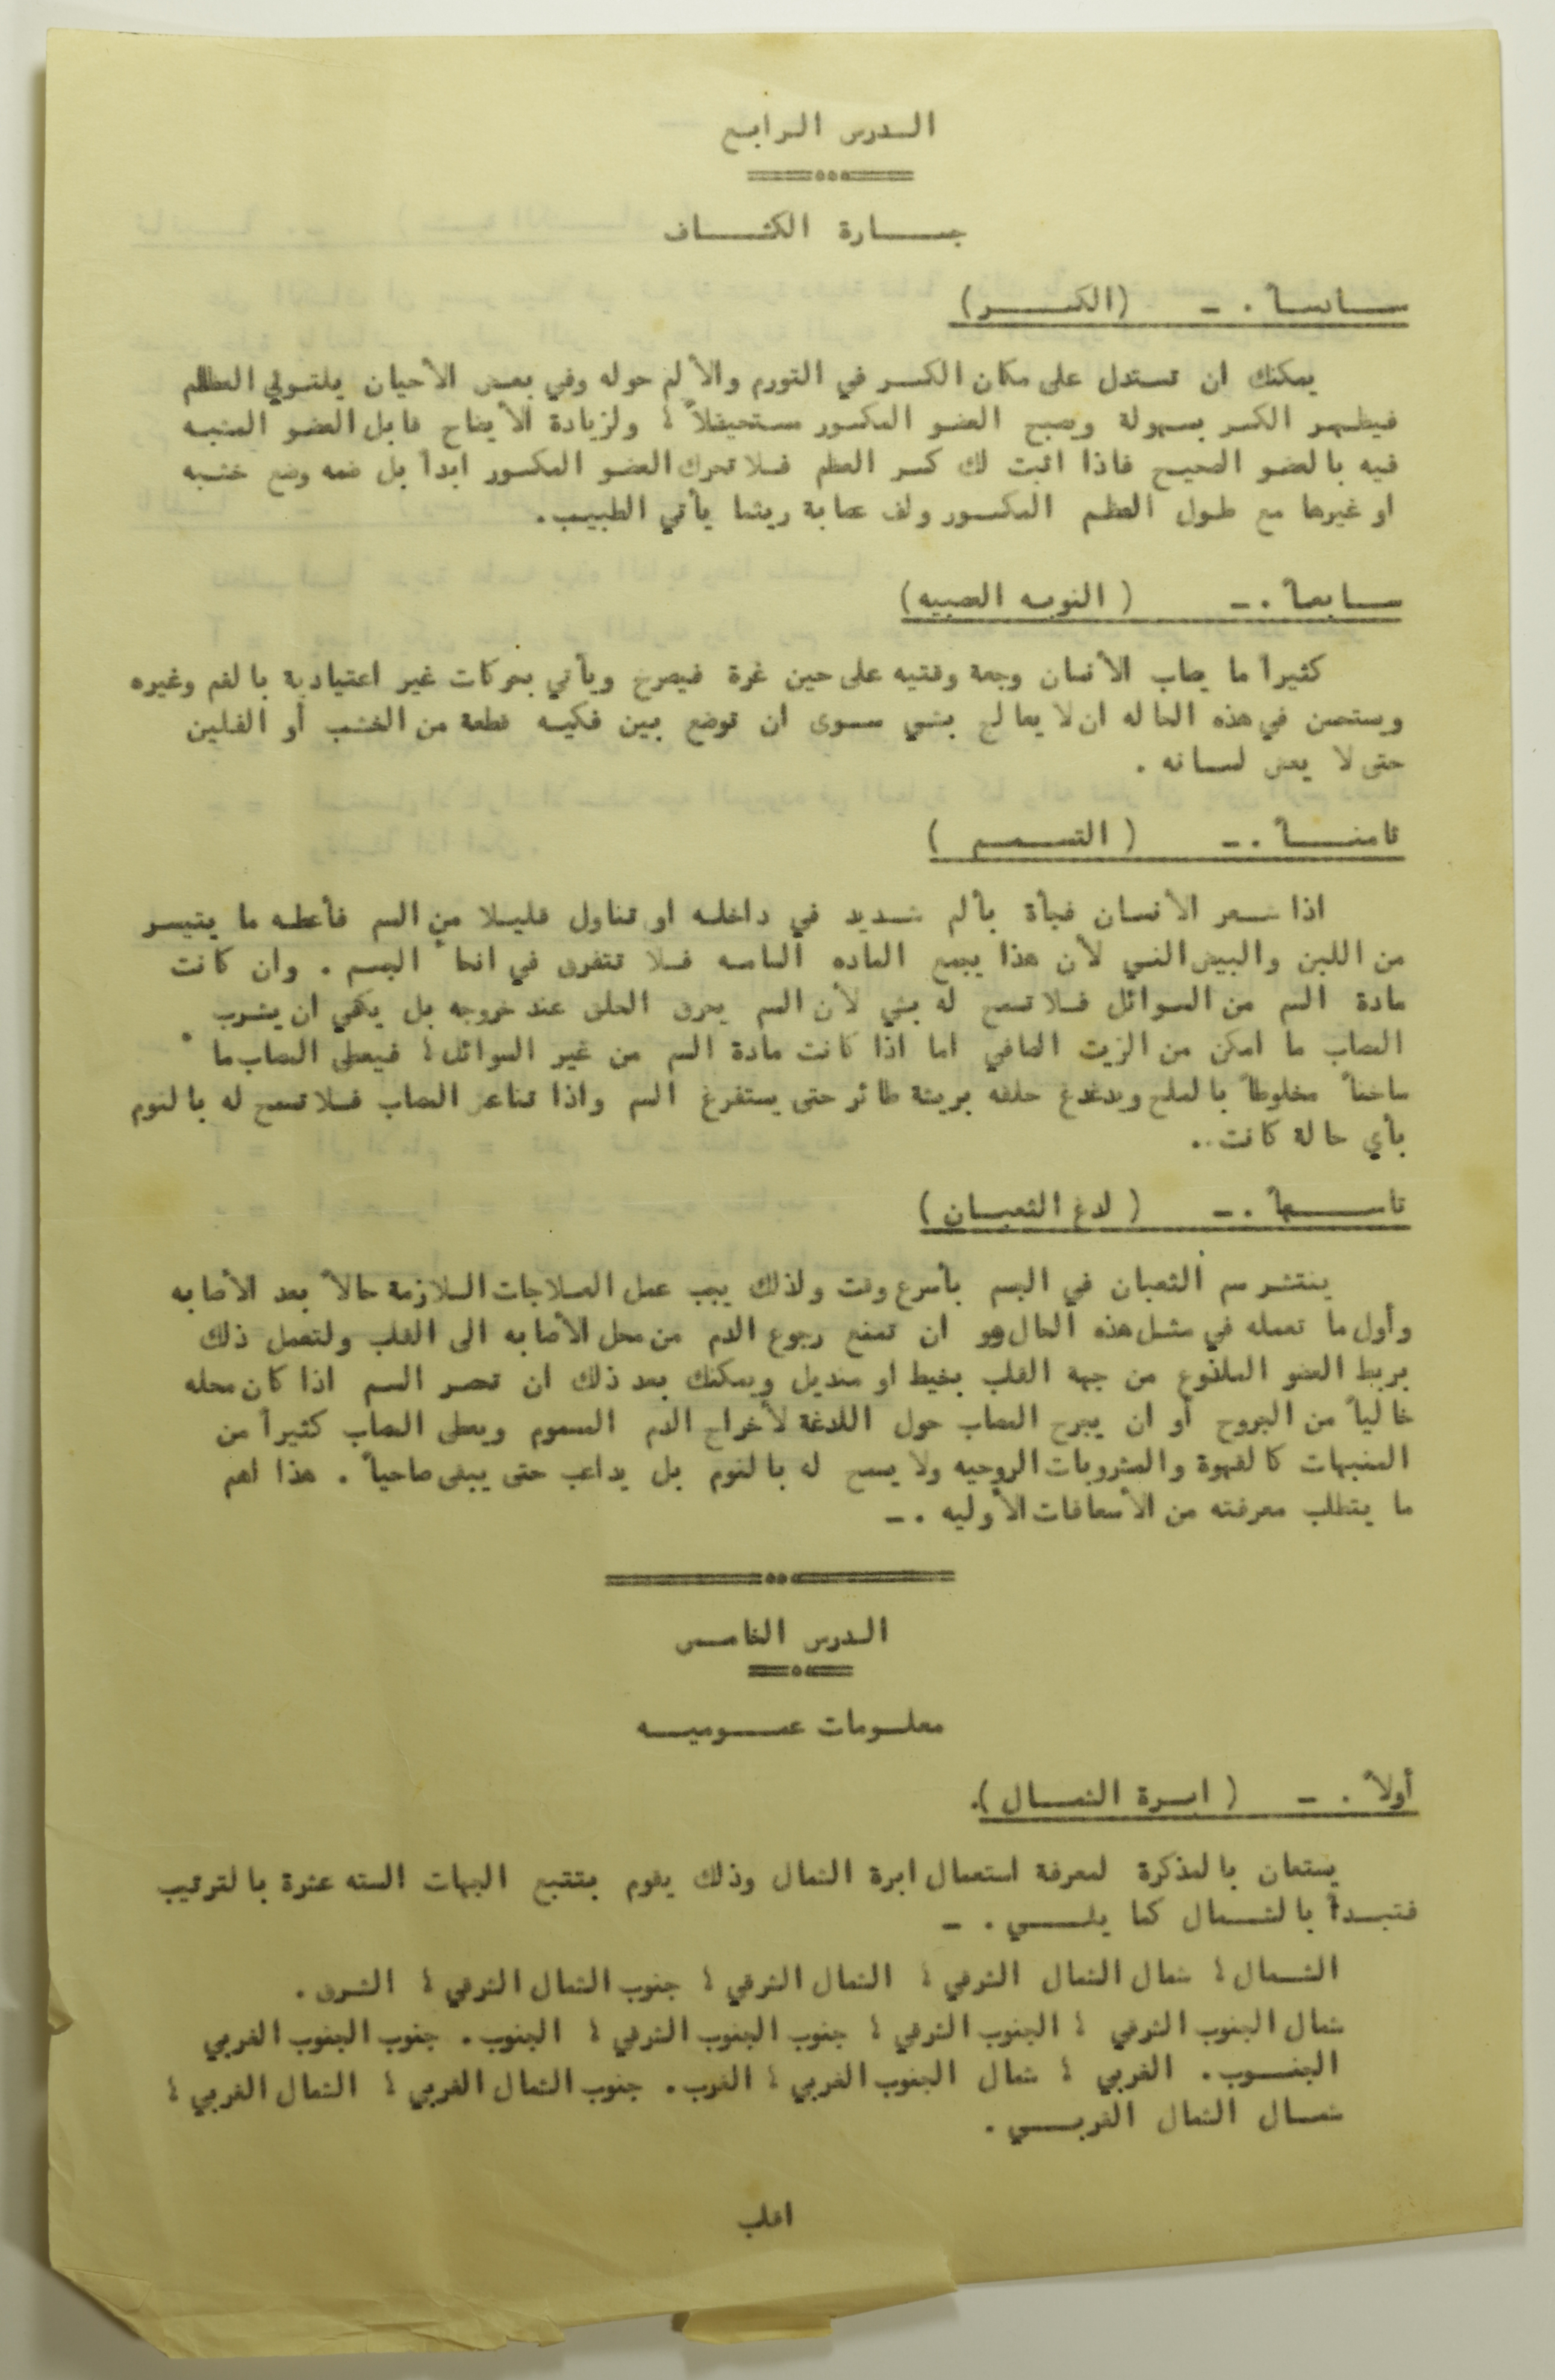 الدرس الرابع
جسارة الكشاف
سادساً . - (الكسر)
يمكنك ان تستدل على مكان الكسر في التورم والألم حوله وفي بعض الأحيان يلتوي العظم
فيظهر الكسر بسهولة ويصبح العضو المكسور مستحيلاً ؛ ولزيادة الأيضاح قابل العضو المشبه
فيه بالعضو الصحيح فاذا اثبت لك كسر العظم فلا تحرك العضو المكسور ابداً بل ضمه وضع خشبه
او غيرها مع طول العظم المكسور ولف عصابة ريثما يأتي الطبيب .
سابعاً .- ( النوبه العصبيه)
كثيراً ما يصاب الأنسان وجعة وقتيه على حين غرة فيصرخ ويأتي بحركات غير اعتيادية بالفم وغيره
ويستحسن في هذه الحاله ان لا يعالج بشي سوى ان توضع بين فكيه قطعة من الخشب أو الفلين
حتى لا يعض لسانه .
ثامناً .- ( التسمم )
اذا شعر الأنسان فجأة بألم شديد في داخله او تناول قليلا من السم فأعطه ما يتيسر
من اللبن والبيض الني لأن هذا يجمع الماده السامه فلا تتفرق في انحاء الجسم . وان كانت
مادة السم من السوائل فلا تسمح له بشي لأن السم يحرق الحلق عند خروجه بل يكفي ان يشرب
المصاب ما امكن من الزيت الصافي اما اذا كانت مادة السم من غير السوائل ؛ فيعطى المصاب ماء
ساخناً مخلوطاً بالملح ويدغدغ حلقه بريشة طائر حتى يستفرغ السم واذا تناعس المصاب فلا تسمح له بالنوم
بأي حالة كانت ..
تاسعاً .- ( لدغ الثعبان )
ينتشر سم الثعبان في الجسم بأسرع وقت ولذلك يجب عمل العلاجات اللازمة حالاً بعد الأصابه
وأول ما تعمله في مثل هذه الحال هو ان تمنع رجوع الدم من محل الأصابه الى القلب ولتعمل ذلك
بربط العضو الملذوع من جهة القلب بخيط او منديل ويمكنك بعد ذلك ان تحصر السم اذا كان محله
خالياً من الجروح أو ان يجرح المصاب حول اللدغة لأخراج الدم المسموم ويعطى المصاب كثيراً من
المنبهات كالقهوة والمشروبات الروحيه ولا يسمح له بالنوم بل يداعب حتى يبقى صاحياً . هذا اهم
ما يتطلب معرفته من الأسعافات الأوليه .-
الدرس الخامس
معلومات عموميه
أولاً . - ( ابرة الشمال ).
يستعان بالمذكرة لمعرفة استعمال ابرة الشمال وذلك يقوم بتتبع الجهات السته عشرة بالترتيب
فتبدأ بالشمال كما يلي . -
الشمال ؛ شمال الشمال الشرقي ؛ الشمال الشرقي ؛ جنوب الشمال الشرقي ؛ الشرق .
شمال الجنوب الشرقي ؛ الجنوب الشرقي ؛ جنوب الجنوب الشرقي ؛ الجنوب . جنوب الجنوب الغربي
الجنوب . الغربي ؛ شمال الجنوب الغربي ؛ الغرب . جنوب الشمال الغربي ؛ الشمال الغربي ؛
شمال الشمال الغربي .
اقلب